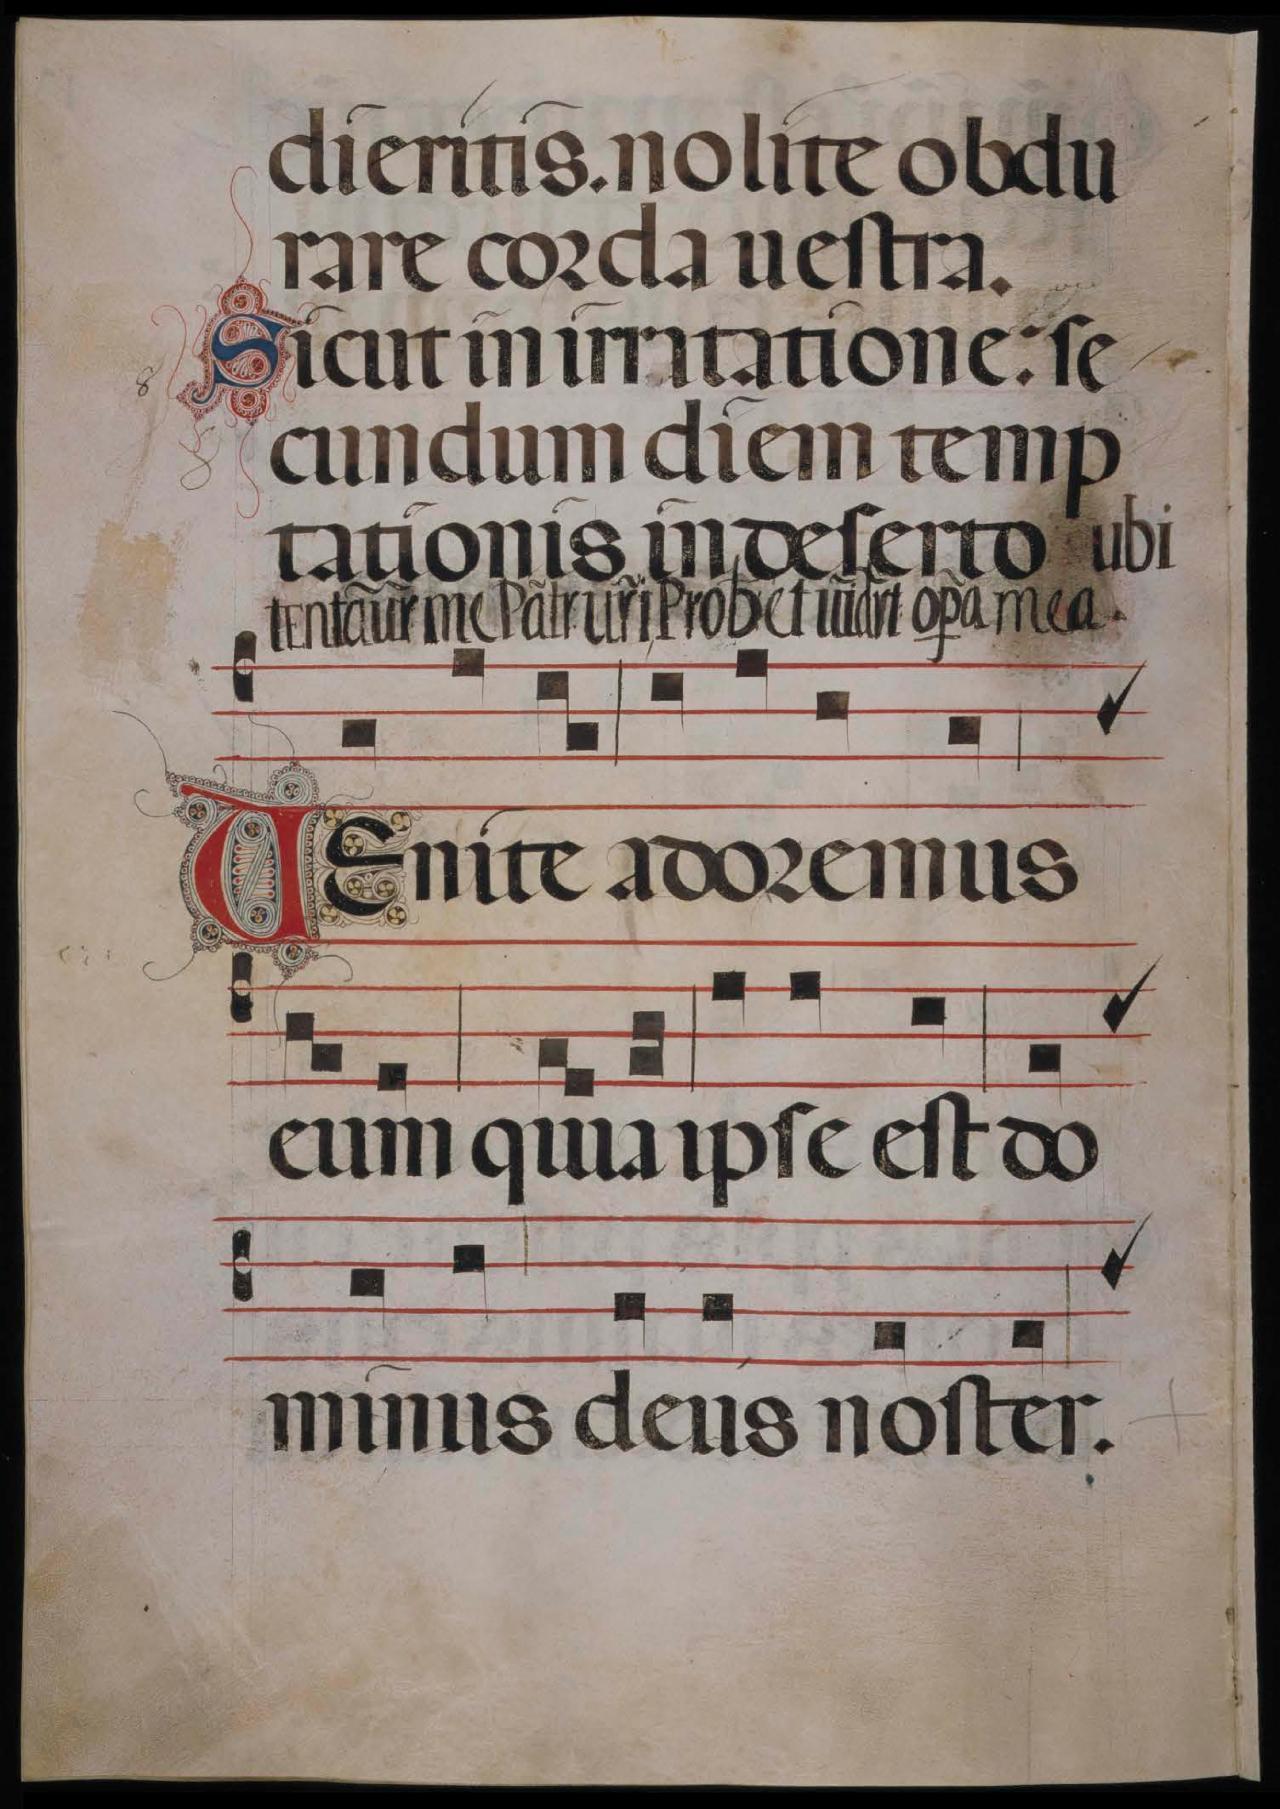 dieritis. nolite obdu
rare corda uestra.
Sicut in irritatione: se
cundum diem temp
tationis in deserto ubi
tentaūr me Patr ūri Prob et uidūt opa mea.
UEnite adoremus
eum quia ipse est do
minus deus noster.